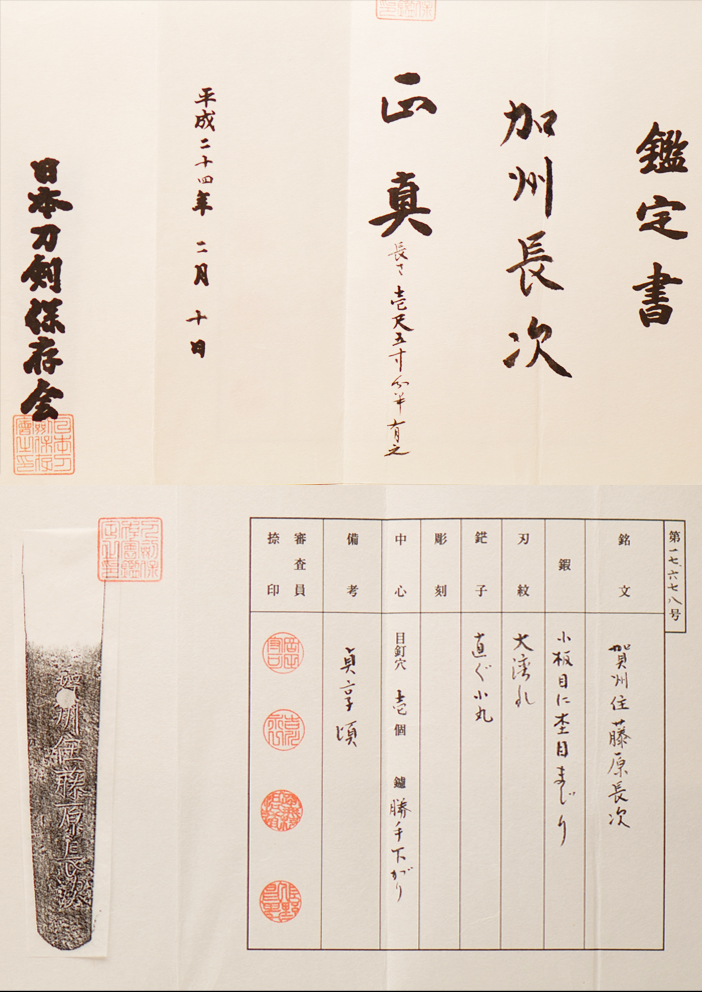 鑑定書
加州長次
正真
長さ壱尺五寸分半有之
平成二十四年二月十日
日本刀剣保存会
第一七、六七八号
銘文
賀州住藤原長次
鍜
小板目に杢目まじり
刃紋
大濤乱
鋩子
直ぐ小丸
彫刻
中心
目釘穴 壱個 鑢 勝手下がり
備考
貞享頃
審査員
捺印
賀州住藤原長次